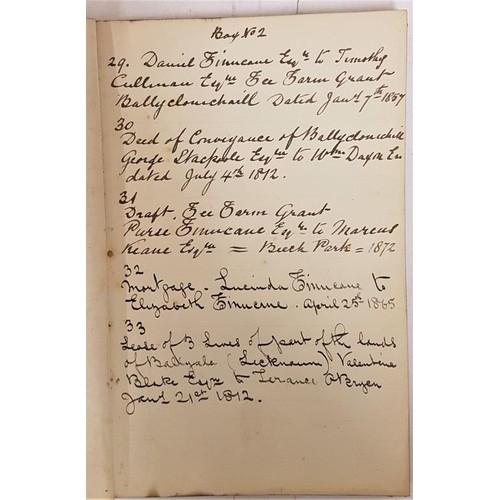 Box No 2
29. Daniel Finucane Esqre to Timothy
Cullinan Esqre Fee Farm Grant
Ballyclounchaill Dated Jany 7th 1857
30
Deed of Conveyance of Ballyclounchaill
George Stackpole Esqre to Wm Daxon Es
dated July 4th 1812.
31
Draft. Fee Farm Grant
Purse Finucane Esqre to Marcus
Keane Esqre = Beech Park = 1872
32
Mortgage. Lucinda Finucane to
Elizabeth Finucane. April 25th 1865
33
Lease of 3 Lives of part of the lands
of Ballyala (Licknaun) Valentine
Blake Esqre to Terance O'Bryen
Jany 21st 1812.